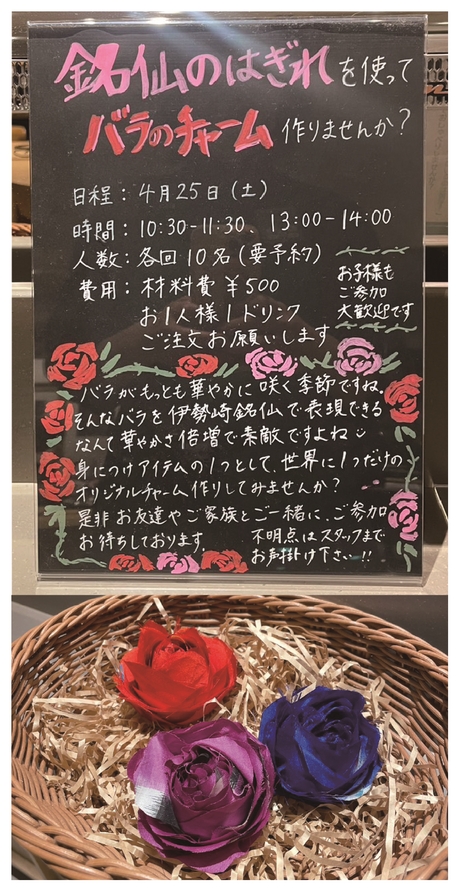 銘仙のはぎれを使って
バラのチャーム作りませんか?
日程:4月25日(土)
時間:10:30-11:30、13:00-14:00
人数:各回10名(要予約)
費用:材料費¥500
お1人様1ドリンク
ご注文お願いします
お子様も
ご参加
大歓迎です
バラがもっとも華やかに咲く季節ですね。
そんなバラを伊勢崎銘仙で表現できる
なんて華やかさ倍増で素敵ですよね
身につけアイテムの1つとして、世界に1つだけの
オリジナルチャーム作りしてみませんか?
是非お友達やご家族とご一緒に、ご参加
お待ちしております。
不明点はスタッフまで
お声掛け下さい!!